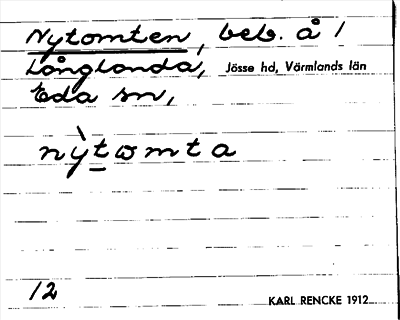 Nytomten, beb. å 1
Långlanda, Jösse hd, Värmlands län
Eda sn,
nỳt̲ωmta
12
KARL RENCKE 1912